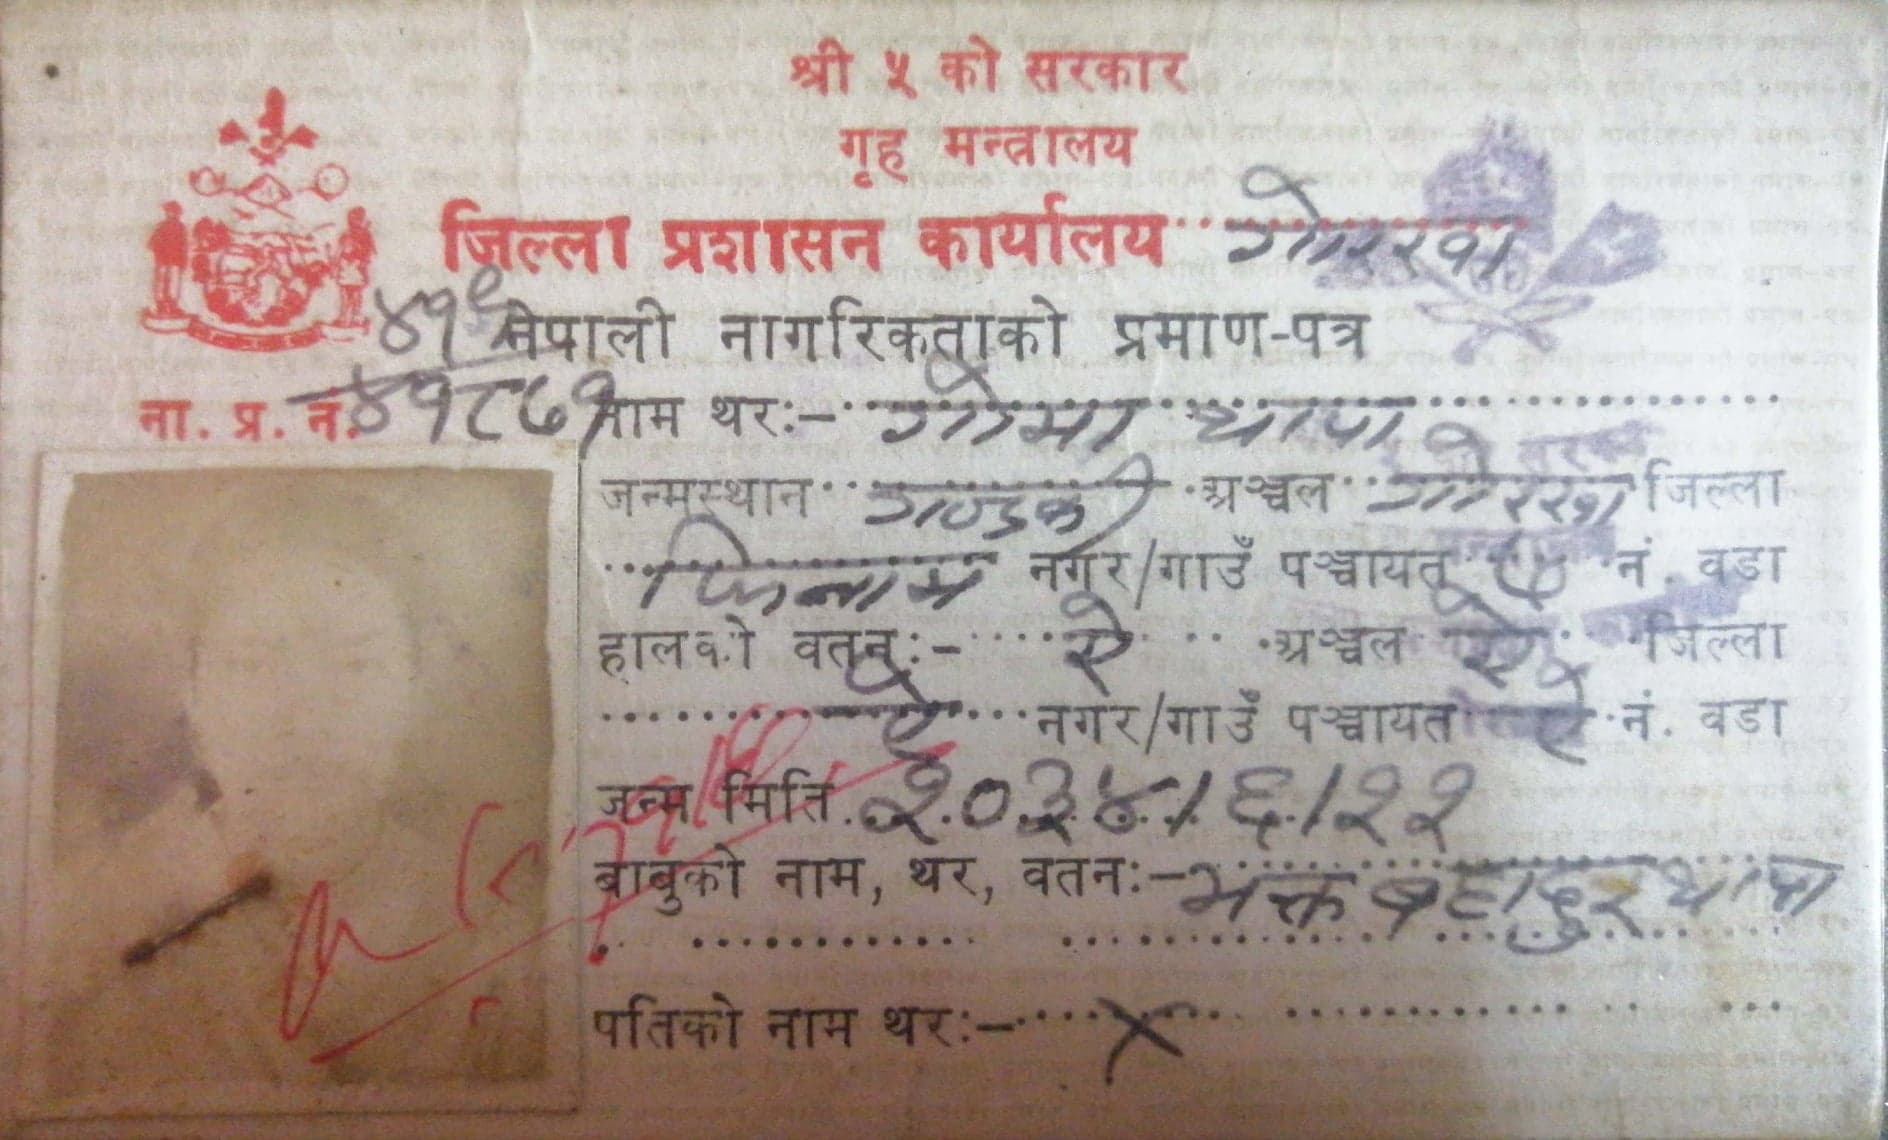 श्री ५ को सरकार
गृह मन्त्रालय
जिल्ला प्रशासन कार्यालय गोरखा
नेपाली नागरिकताको प्रमाण-पत्र
४१९
ना. प्र. नं. ४१८७१
नाम थर:- गोमा थापा
जन्मस्थान गण्डकी अञ्चल गोरखा जिल्ला
फिनाम नगर/गाउँ पञ्चायत ७ नं. वडा
हालको वतन:- ऐ अञ्चल ऐ जिल्ला
ऐ नगर/गाउँ पञ्चायत ऐ नं. वडा
जन्म मिति २०३४/६/२२
बाबुको नाम, थर, वतन:- भक्त बहादुर थापा
पतिको नाम थर:- X